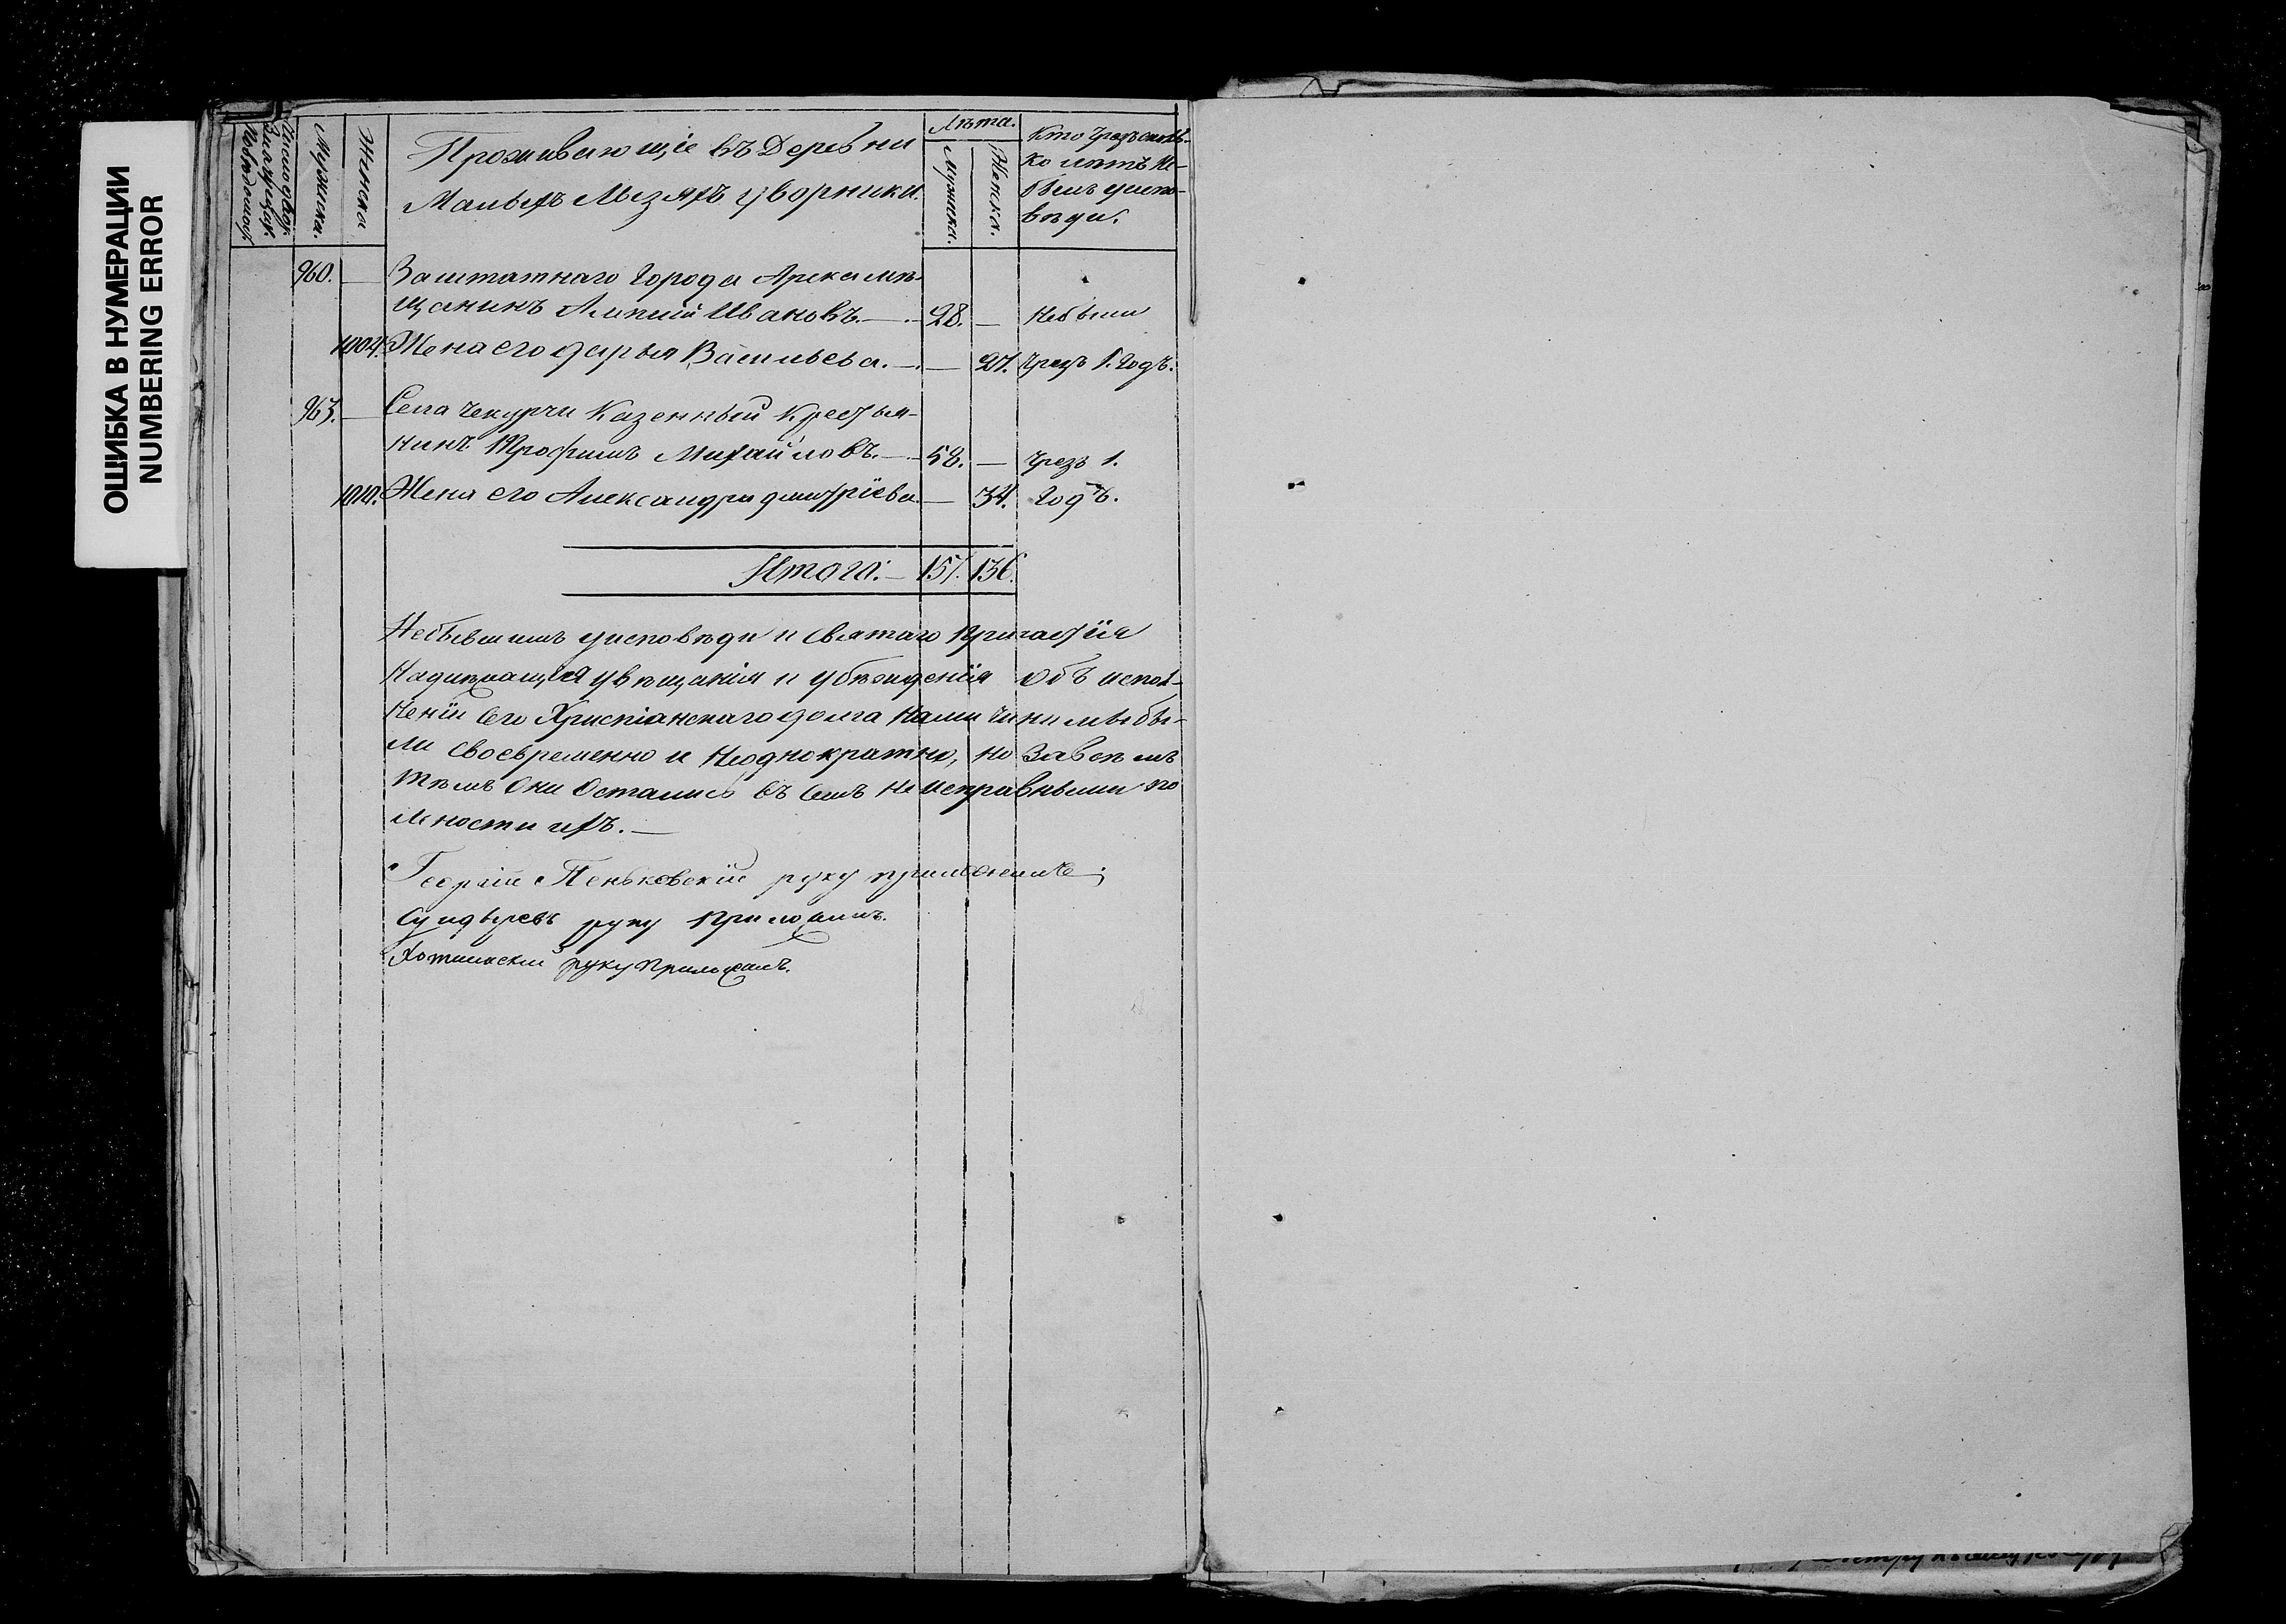 ОШИБКА В НУМЕРАЦИИ
NUMBERING ERROR
Мужска.
Женска
Проживающіе въ Деревни
Малыхъ Мызяхъ уворники.
Лѣта.
Мужска.
Женска.
Кто чрезъ сколь-
ко лѣтъ не-
былъ уиспо-
вѣди.
960. — Заштатнаго Города Арска мѣ-
щанинъ Алипій Ивановъ. — 28. — Небыли
1004. Жена его дарья Васильева. — — 27. Чрезъ 1. Годъ.
963. — Села Чекурчи Казенный Крестья-
нинъ Трофимъ Михайловъ. — 58. — Чрезъ 1.
1010. Жена его Александра дмитріева. — 34. Годъ.
Итого: — 157. 136.
Небывшимъ уисповѣди и Святаго Причастія
Надлежащія увѣщанія и убѣжденія объ испол-
неніи Сего Христіанскаго долга Нами Чинимы бы-
ли Своевременно и Неоднократно, но Завсѣмъ
тѣмъ Они Остались въ Семъ Неисправными по
лѣности ихъ. —
Георгій Пеньковскій руку приложилъ;
руку Приложилъ.
Хотинскій руку Приложилъ.